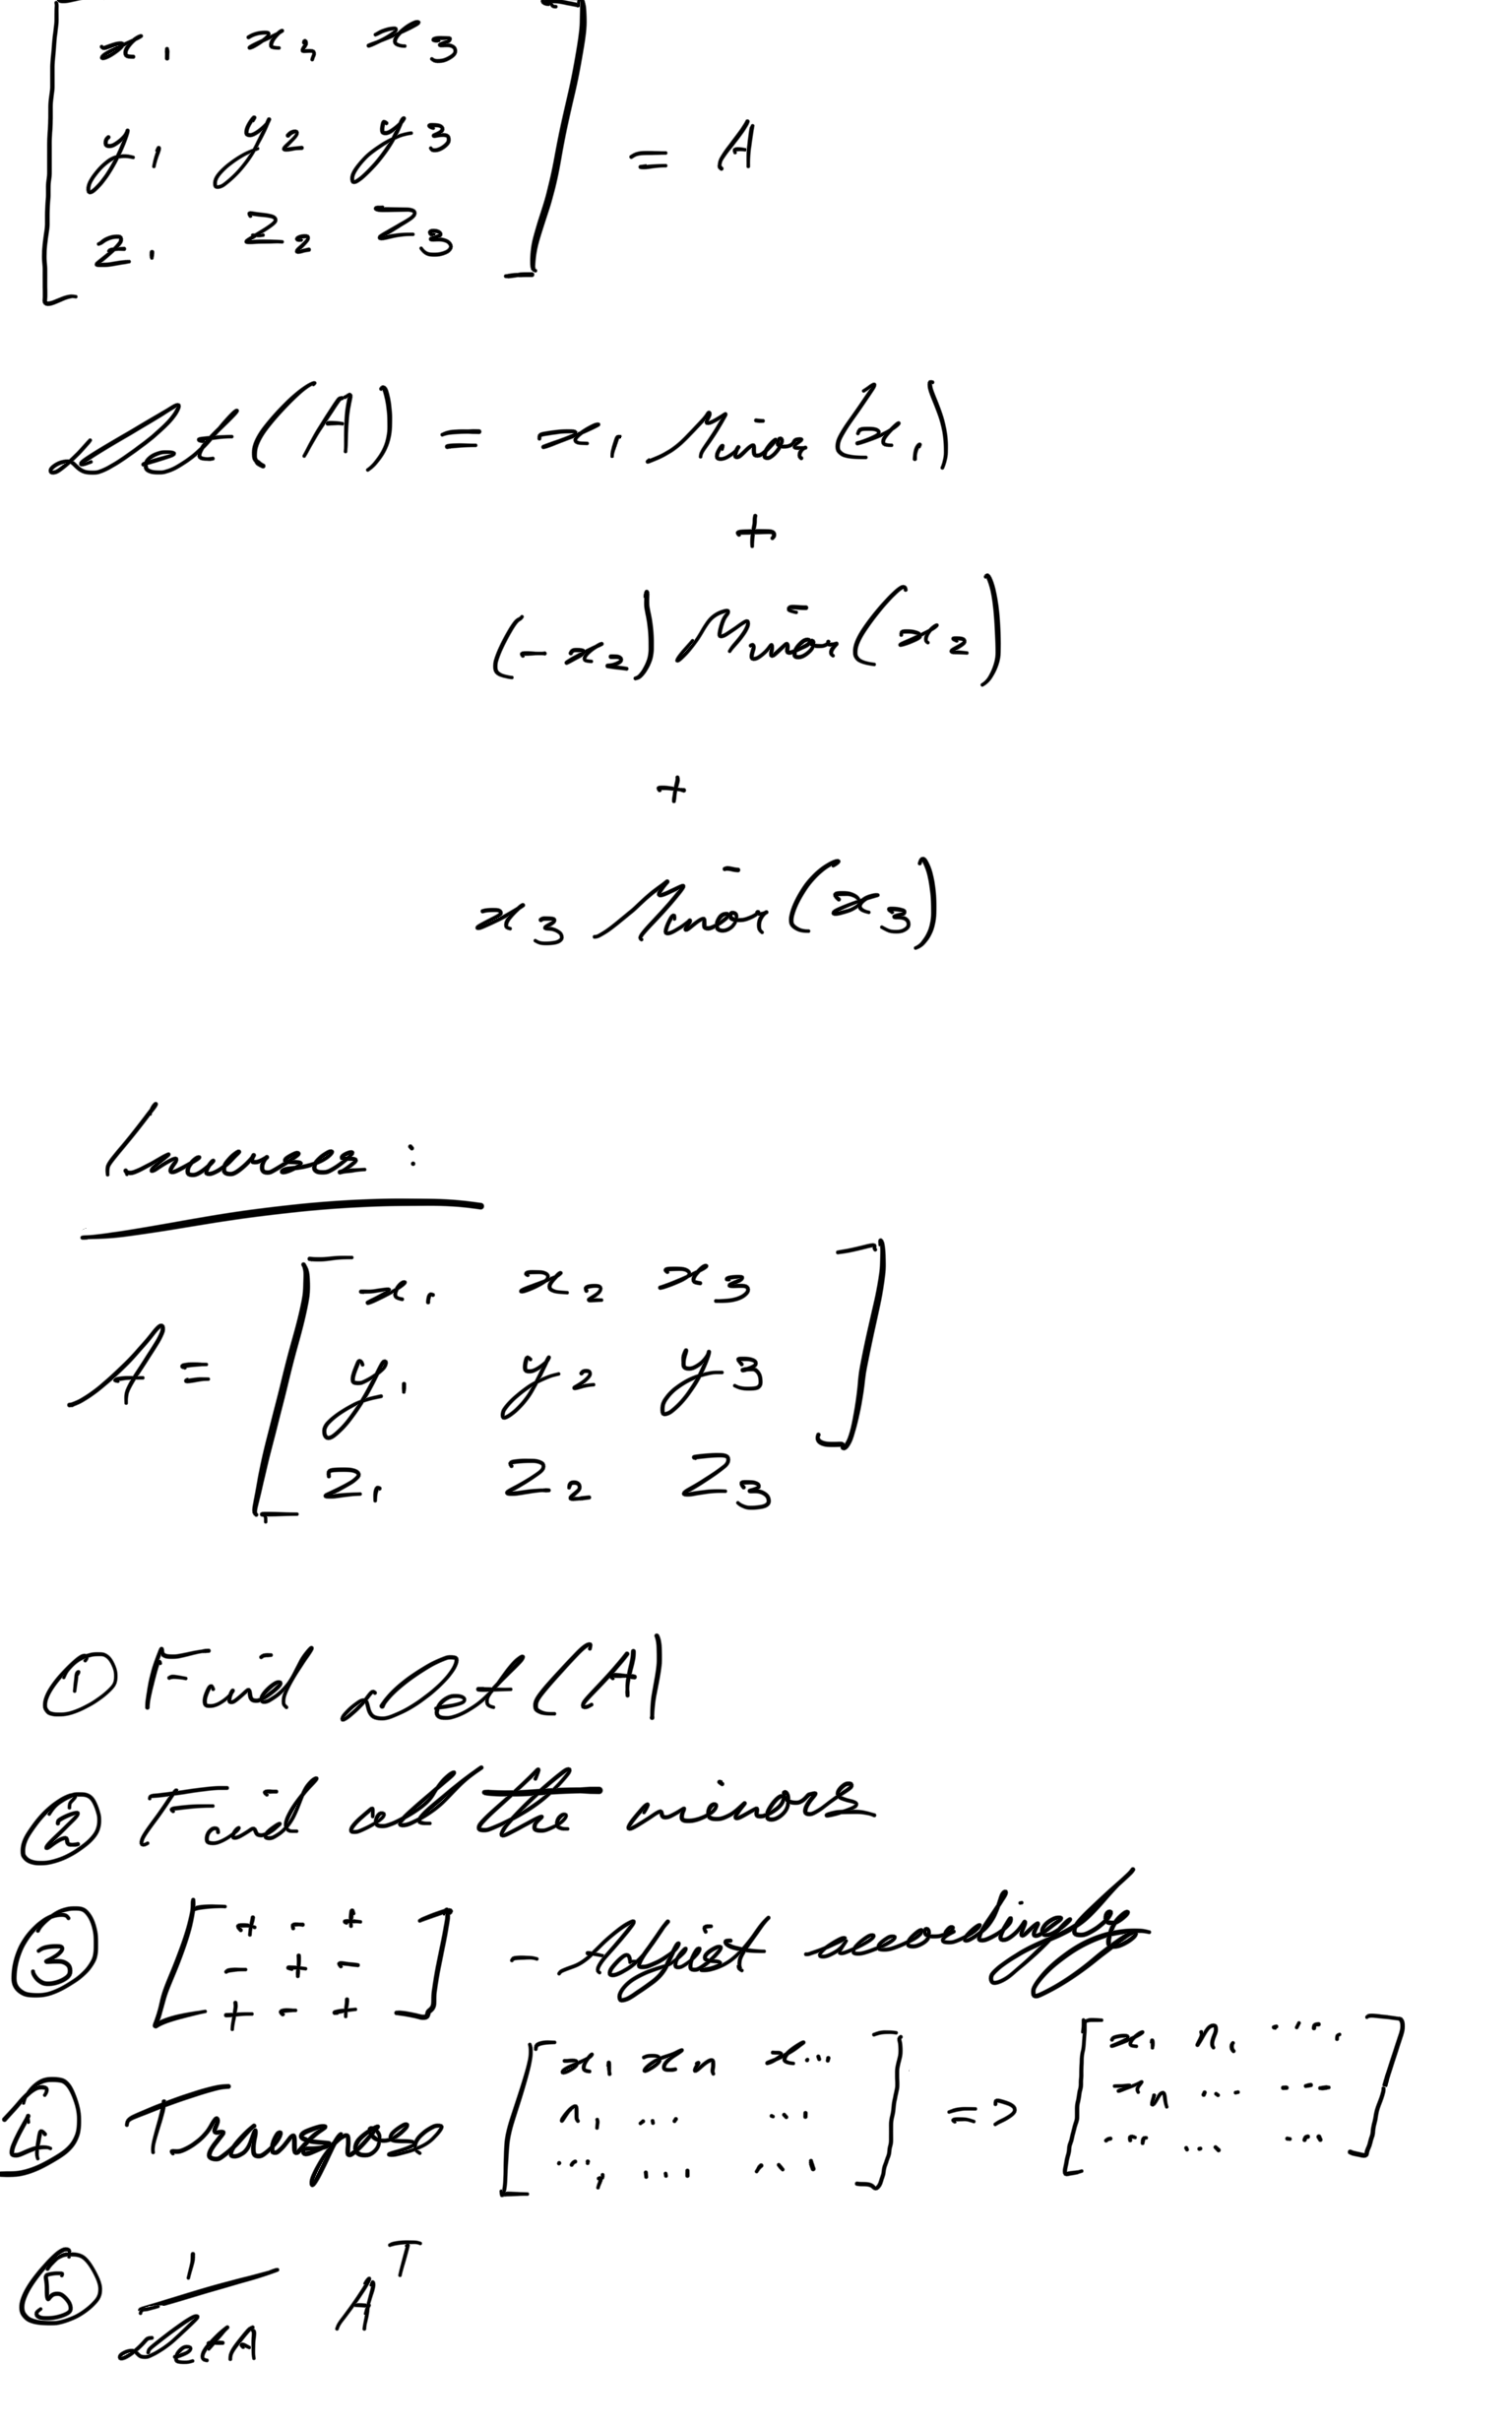 x₁ x₂ x₃
y₁ y₂ y₃ = A
z₁ z₂ z₃
Det(A) = x₁ Minor (x₁)
+
(-x₂) Minor (x₂)
+
x₃ Minor (x₃)
Inverses :
x₁ x₂ x₃
A = y₁ y₂ y₃
z₁ z₂ z₃
① Find Det(A)
② Find all the minors
③ [+ - + - + - + - +] - Adjust accordingly
④ Transpose =>
⑤ 1/detA Aᵀ